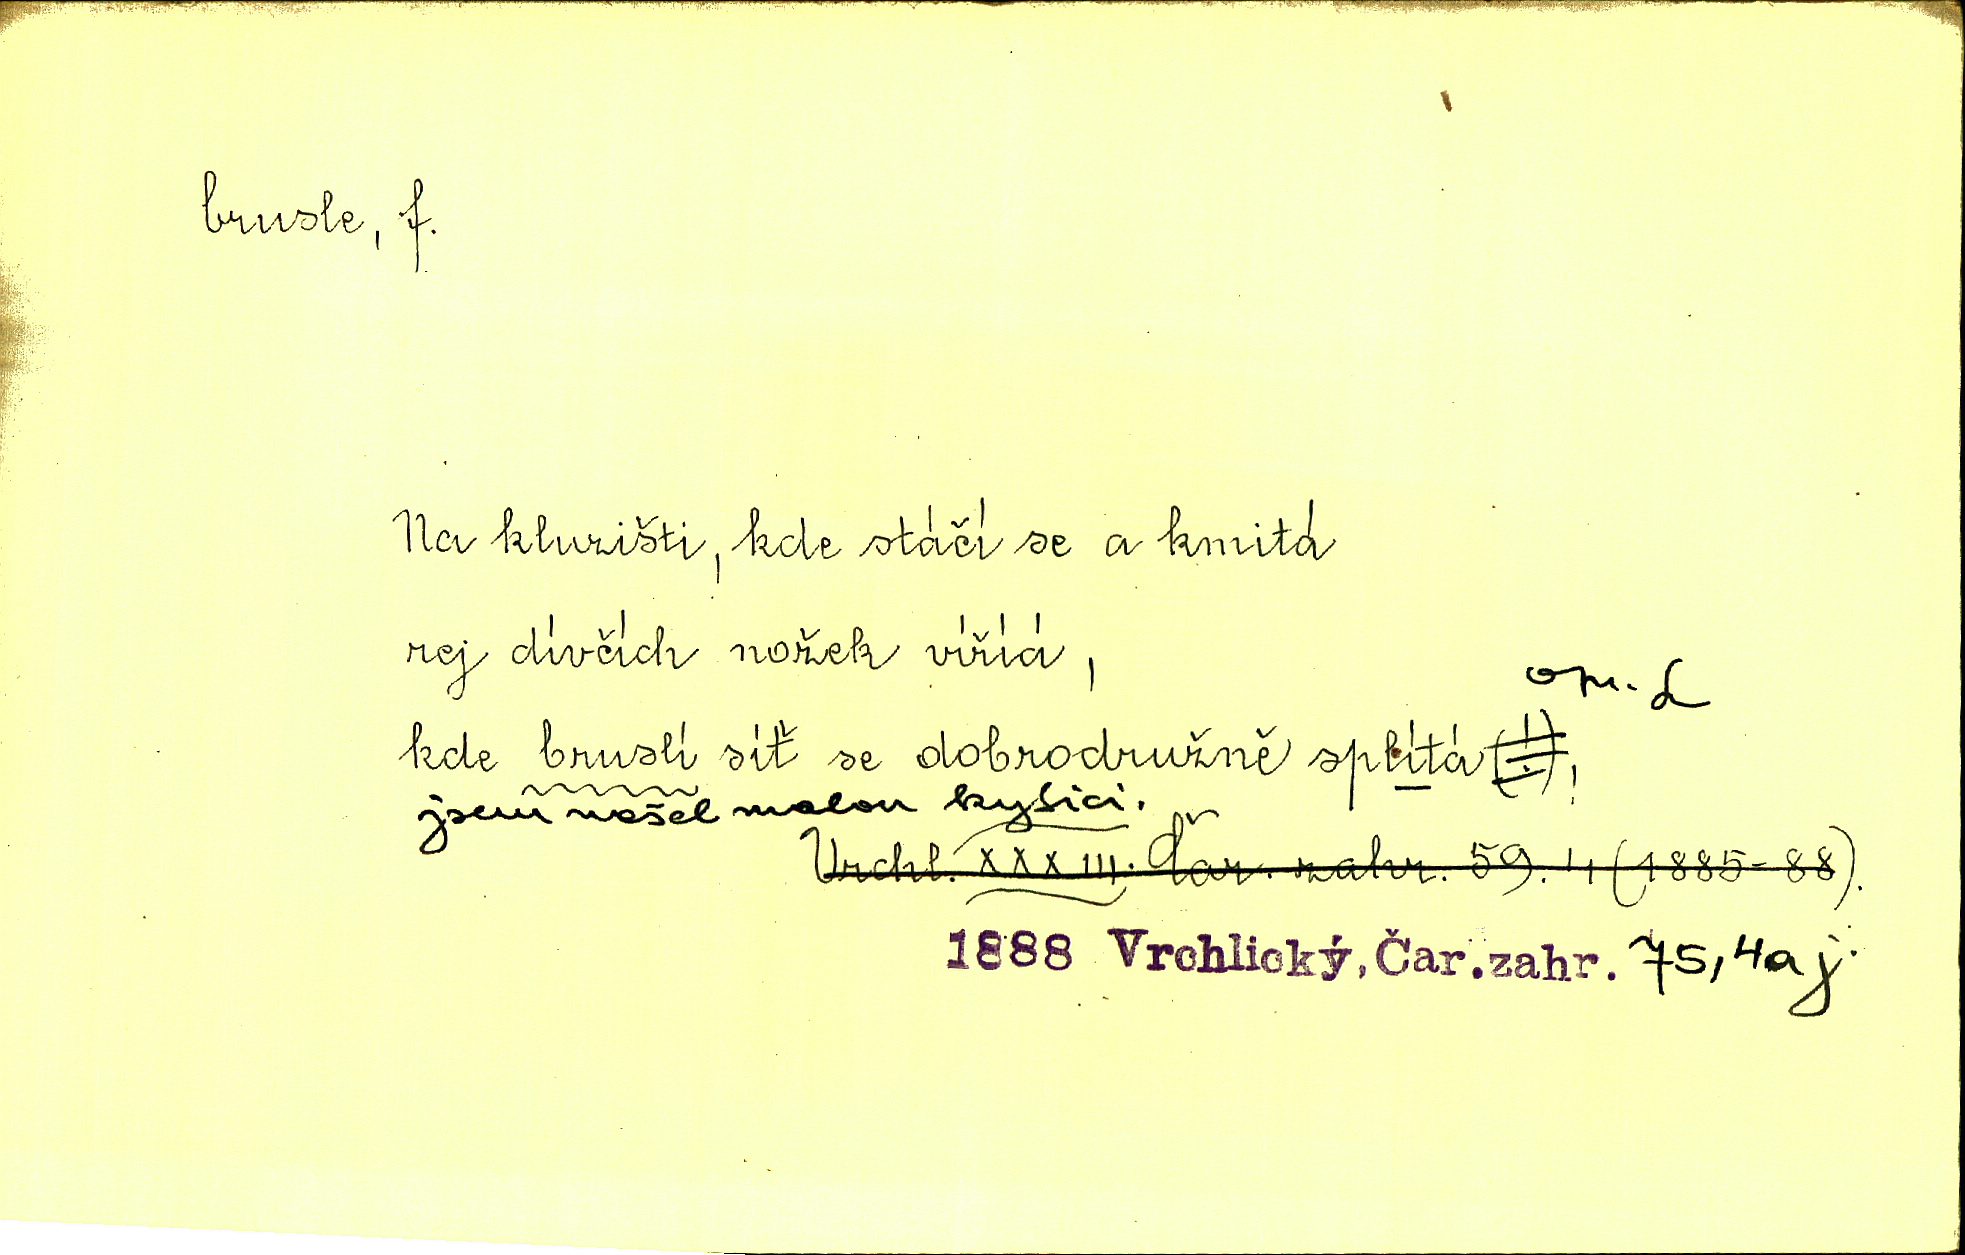 brusle, f.
Na kluzišti, kde stáčí se a kmitá
rej dívčích nožek víříá,
opr. L
kde bruslí síť se dobrodružně splítá (!),
jsem našel malou kytici.
Vrchl. XXXIII. Čar. zahr. 59. 4 (1885-88).
1888 Vrchlický, Čar. zahr. 75, 4 aj.